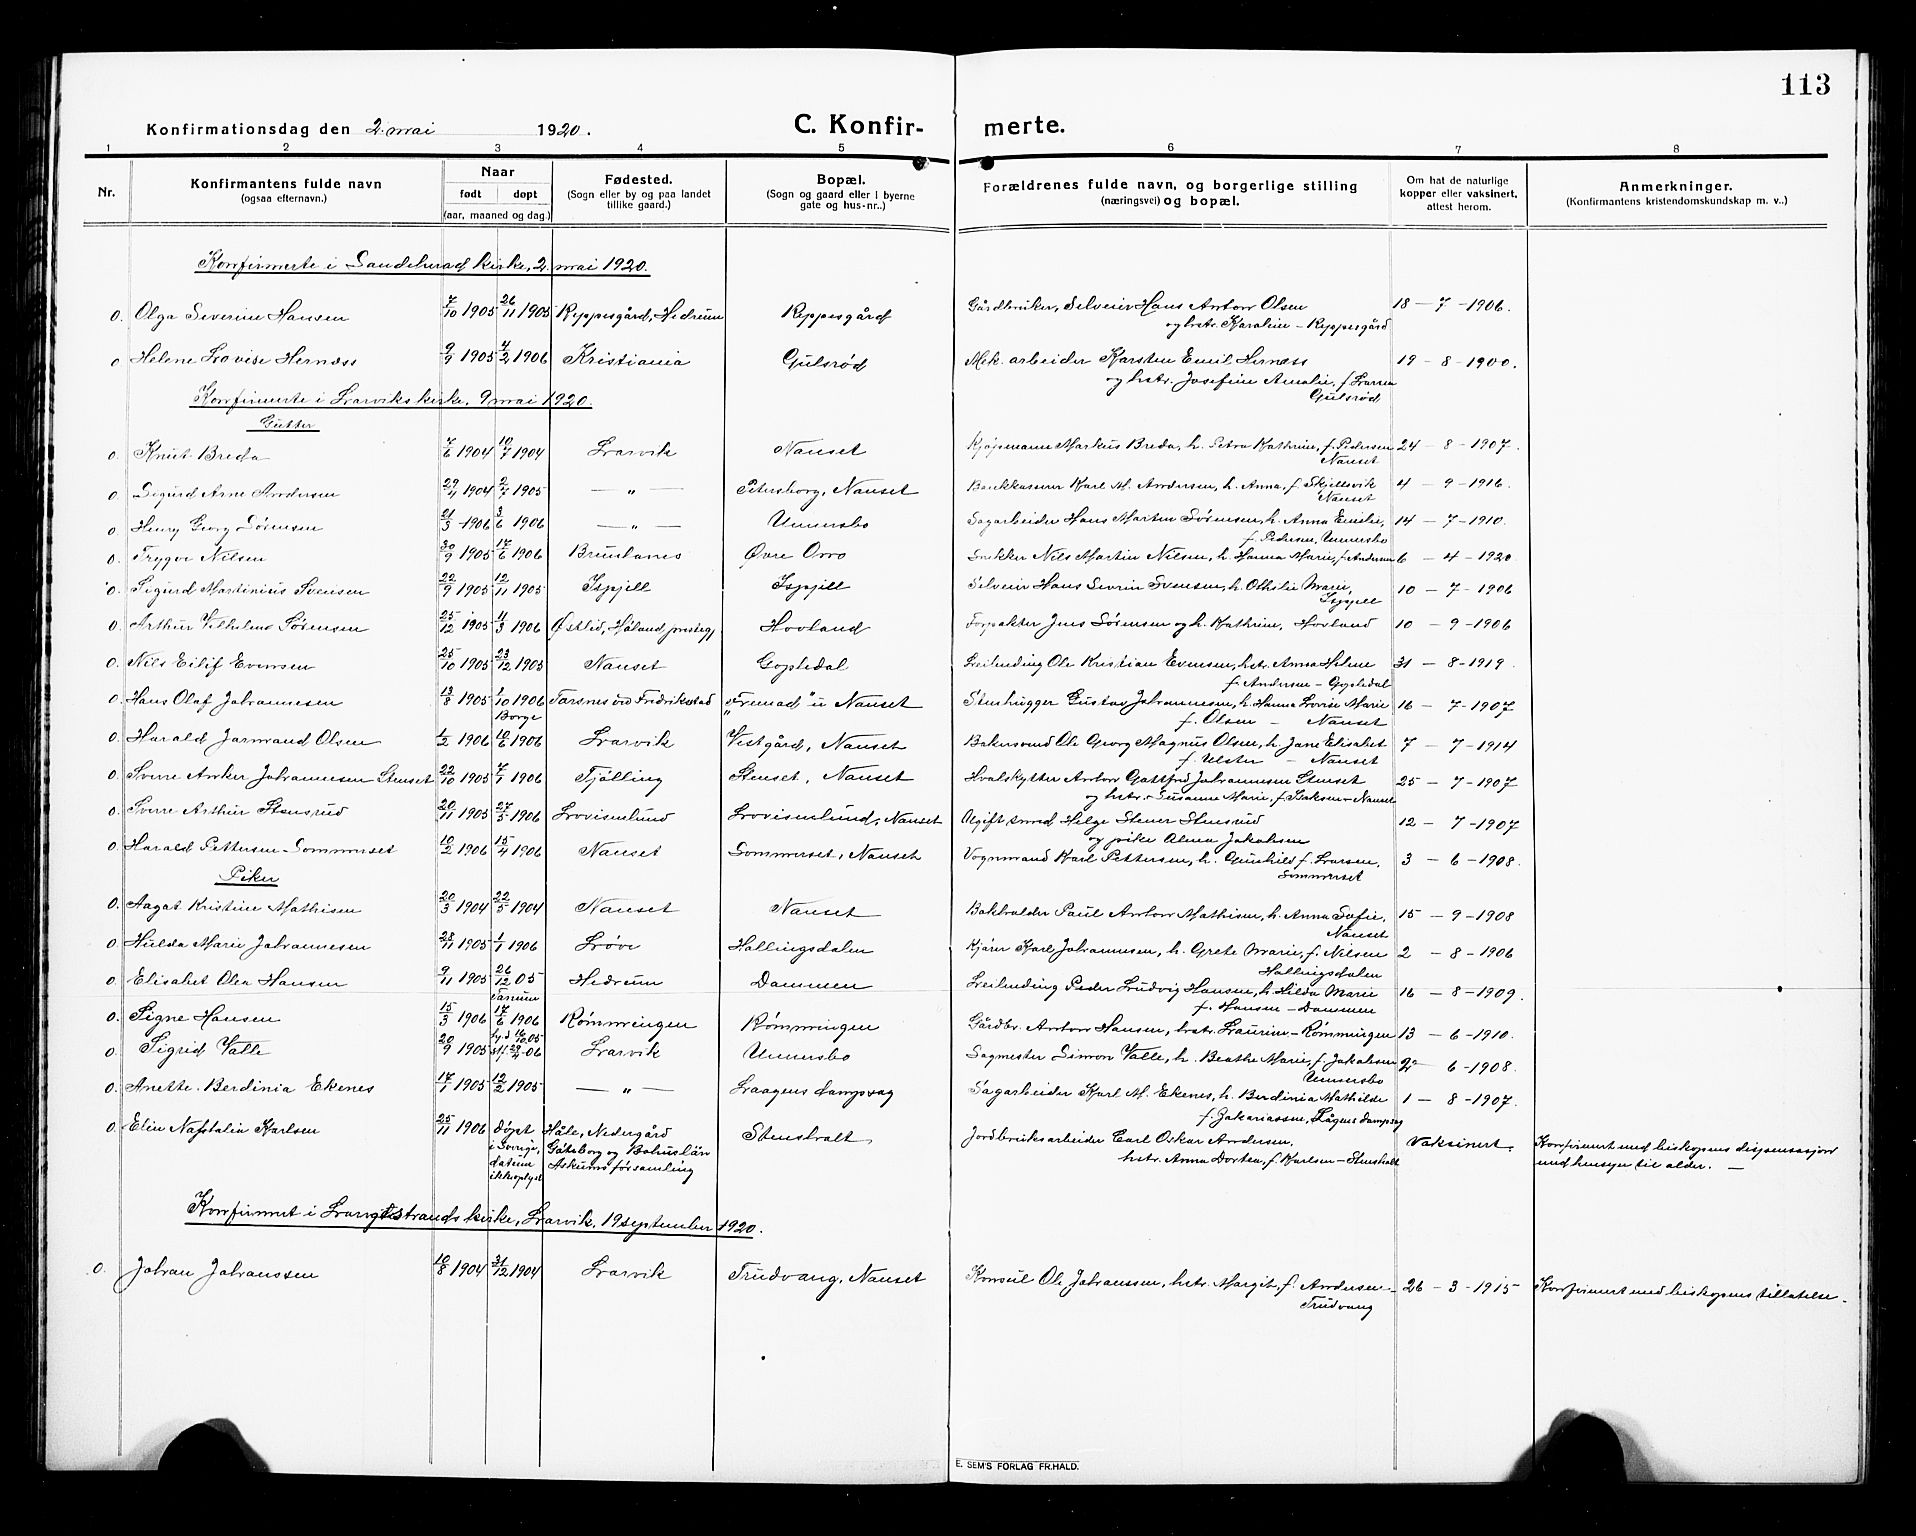 113
Konfirmationsdag den 2. mai 1920. C. Konfir- merte.
1 2 3 4 5 6 7 8
Nr. Konfirmantens fulde navn (ogsaa efternavn.) Naar født døpt (aar, maaned og dag.) Fødested. (Sogn eller by og paa landet tillike gaard.) Bopæl. (Sogn og gaard eller i byerne gate og hus-nr..) Forældrenes fulde navn, og borgerlige stilling (næringsvei) og bopæl. Om hat de naturlige kopper eller vaksinert, attest herom. Anmerkninger. (Konfirmantens kristendomskundskap m. v..)
Konfirmerte i Sandeherad kirke, 2. mai 1920.
0. Olga Severine Hansen 7/10 1905 26/11 1905 Reppesgård, Hedrum Reppesgård Gårdbruker, Selveier Hans Anton Olsen 18 - 7 - 1906.
og hstr. Karoline - Reppesgård
0 Helene Lovise Hernæss 9/9 1905 4/2 1906 Kristiania Gulsrød Mek. arbeider Karsten Emil Hernæss 19 - 8 - 1900.
og hstr. Josefine Amalie, f. Larsen
Gulsrød
Konfirmerte i Larviks kirke, 9 mai 1920.
Gutter
0. Knut Breda 7/6 1904 10/7 1904 Larvik Nanset Kjøpmann Markus Breda, h. Petra Kathrine, f. Pedersen 24 - 8 - 1907.
Nanset
0. Sigurd Arne Andersen 29/11 1904 2/7 1905 — " — Petersborg, Nanset Bankkasserer Karl M. Andersen, h. Anna, f. Skjellsvik 4 - 9 - 1916.
Nanset
0. Henry Georg Sørensen 21/3 - 1906 3/6 1906 — " — Unnersbo Sagarbeider Hans Martin Sørensen, h. Anna Emilie, 14 - 7 - 1910.
f. Pedersen, Unnersbo
0. Trygve Nilsen 30/9 1905 17/6 1906 Brunlanes Øvre Omo Snekker Nils Martin Nilsen, h. Hanna Marie, f. Andersen 6 - 4 - 1920
0. Sigurd Martinius Svensen 22/9 1905 12/11 1905 Ispjell Ispjell Selveier Hans Severin Svensen, h. Othilie Marie, 10 - 7 - 1906
Ispjell
0. Arthur Vilhelm Sørensen 25/12 1905 11/3 1906 Østlid, Håland prestegj Hovland Forpakter Jens Sørensen og h. Kathrine, Hovland 10 - 9 - 1906
0. Nils Eilif Evensen 25/10 1905 23/12 1905 Nanset Gopledal Leilending Ole Kristian Evensen, hstr. Anna Helene 31 - 8 - 1919.
f. Andersen - Gopledal
0. Hans Olaf Johannesen 13/8 1905 1/10 1906 Torsnes ved Fredrikstad "Fremad" i Nanset Stenhugger Gustav Johannesen, h. Hanna Lovise Marie 16 - 7 - 1907
Borge f. Olsen - Nanset
0. Harald Jormand Olsen 1/2 1906 10/6 1906 Larvik Vestgård, Nanset Bakersvend Ole Georg Magnus Olsen, h. Jane Elisabet 7 - 7 - 1914
f. Ulster - Nanset
0. Sverre Anker Johannesen Stenset 22/10 1905 7/1 1906 Tjølling Stenset, Nanset Hvalskytter Anton Gottfred Johannesen Stenset 25 - 7 - 1907
og hstr. Susanne Marie, f. Isaksen - Nanset
0. Sverre Arthur Stensrud 20/11 1905 27/5 1906 Lovisenlund Lovisenlund, Nanset Ugift mand Helge Stener Stensrud 12 - 7 - 1907
og pike Alma Jakobsen
0. Harald Pettersen-Sommerset 10/2 1906 15/4 1906 Nanset Sommerset, Nanset Vognmand Karl Pettersen, h. Gunhild f. Larsen, 3 - 6 - 1908.
Sommerset
Piker
0. Aagot Kristine Mathisen 20/3 1904 22/5 1904 Nanset Nanset Bokholder Paul Anton Mathisen, h. Anna Sofie, 15 - 9 - 1908
Nanset
0. Hulda Marie Johannesen 28/11 1905 1/1 1906 Løve Hallingsdalen Kjører Karl Johannesen, h. Grete Marie, f. Nilsen 2 - 8 - 1906
Hallingsdalen
0. Elisabet Olea Hansen 9/11 1905 26/12 05 Hedrum Dammen Leilending Peder Ludvig Hansen, h. Hilda Marie 16 - 8 - 1909.
Tanum f. Hansen - Dammen
0. Signe Hansen 15/3 1906 17/6 1906 Rømmingen Rømmingen Gårdbr. Anton Hansen, hstr. Laurine - Rømmingen 13 - 6 - 1910.
0 Sigrid Valle 20/9 1905 hj.d 16/10 05 st. f. 29/4 - 06 Larvik Unnersbo Sagmester Simon Valle, h. Beathe Marie, f. Jakobsen 22 - 6 - 1908.
Unnersbo
0. Anette Berdinia Ekenes 17/1 1905 12/2 1905 — " — Laagens dampsag Sagarbeider Karl M. Ekenes, h. Berdinia Mathilde 1 - 8 - 1907.
f. Zakariassen, Lågens dampsag
0. Elin Naftalia Karlsen 25/11 1906 Døpt Håle, Nedergård Stensholt Jordbruksarbeider Carl Oskar Andersen, Vaksinert. Konfirmert med biskopens dispensasjon
i Sverige, Göteborg og Bohuslän hstr. Anna Dortea, f. Karlsen - Stensholt med hensyn til alder. —
datum Askums församling
ikke oplyst
Konfirmert i Langestrands kirke, Larvik, 19 september 1920.
0. Johan Johanssen 10/8 1904 31/12 1904 Larvik Trudvang, Nanset Konsul Ole Johanssen, hstr. Margit, f. Andersen - 26 - 3 - 1915 Konfirmert med biskopens tillatelse.
Trudvang
E. SEM'S FORLAG FR.HALD.